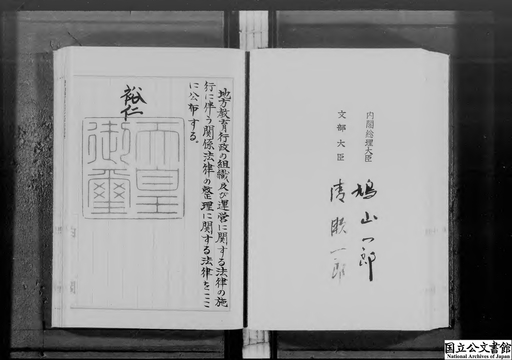 内閣総理大臣
鳩山一郎
文部大臣
清瀬一郎
地方教育行政の組織及び運営に関する法律の施
行に伴う関係法律の整理に関する法律をここ
に公布する。
裕仁
天皇
御璽
国立公文書館
National Archives of Japan